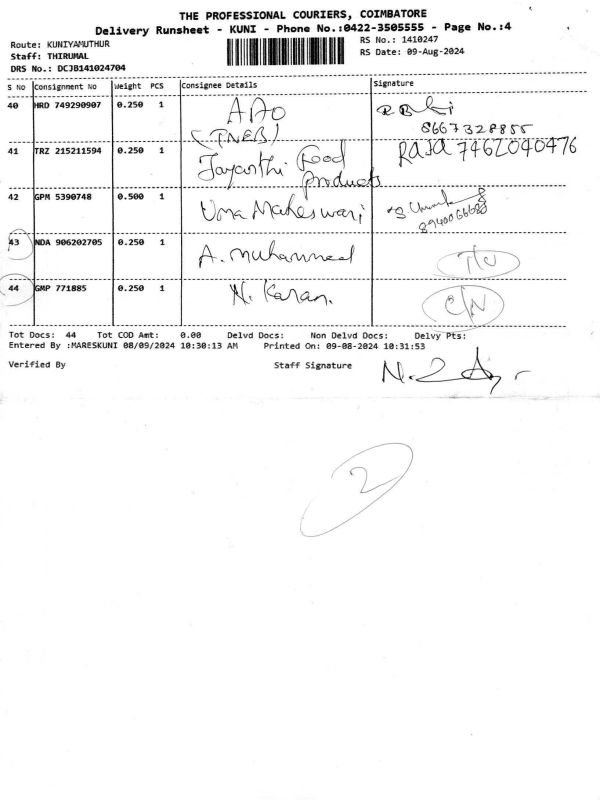 THE PROFESSIONAL COURIERS, COIMBATORE
Delivery Runsheet - KUNI - Phone No.:0422-3505555 - Page No.:4
Route: KUNIYAMUTHUR RS No.: 1410247
Staff: THIRUMAL RS Date: 09-Aug-2024
DRS No.: DCJB141024704
S No Consignment No Weight PCS Consignee Details Signature
40 HRD 749290907 0.250 1 AAO
(TNEB) 8667328855
41 TRZ 215211594 0.250 1 Jayanthi Food Raja 7462040476
Products
42 GPM 5390748 0.500 1 Uma Maheswari
43 NDA 906202705 0.250 1 A. Muhammed
44 GMP 771885 0.250 1 N. Karan.
Tot Docs: 44 Tot COD Amt: 0.00 Delvd Docs: Non Delvd Docs: Delvy Pts:
Entered By :MARESKUNI 08/09/2024 10:30:13 AM Printed On: 09-08-2024 10:31:53
Verified By Staff Signature
2